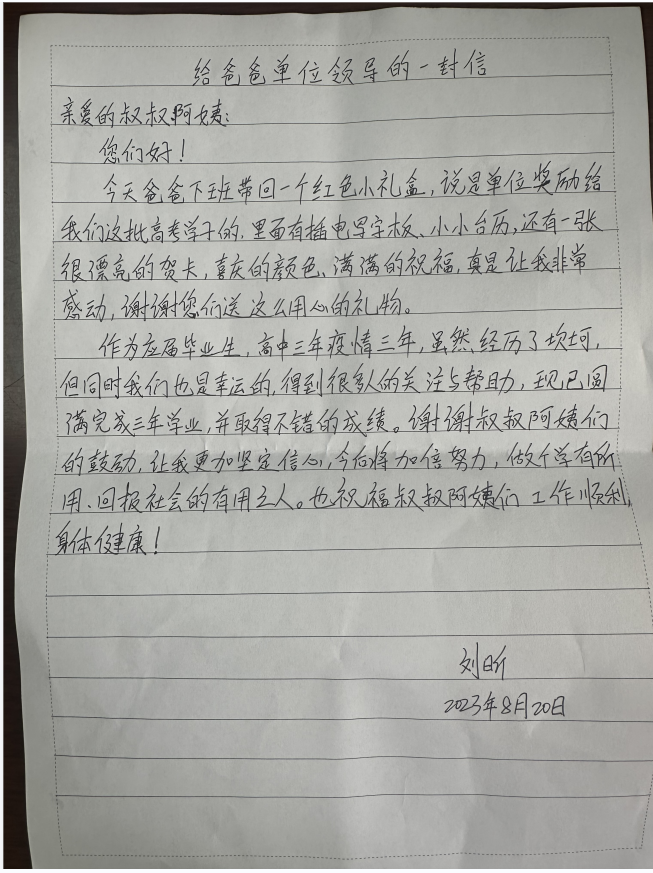 给爸爸单位领导的一封信
亲爱的叔叔阿姨:
您们好!
今天爸爸下班带回一个红色小礼盒,说是单位奖励给
我们这批高考学子的,里面有插电写字板、小小台历,还有一张
很漂亮的贺卡,喜庆的颜色、满满的祝福,真是让我非常
感动,谢谢您们送这么用心的礼物。
作为应届毕业生,高中三年疫情三年,虽然经历了坎坷,
但同时我们也是幸运的,得到很多人的关注与帮助,现已圆
满完成三年学业,并取得不错的成绩。谢谢叔叔阿姨们
的鼓动,让我更加坚定信心,今后将加倍努力,做个学有所
用、回报社会的有用之人。也祝福叔叔阿姨们工作顺利,
身体健康!
刘昕
2023年8月20日